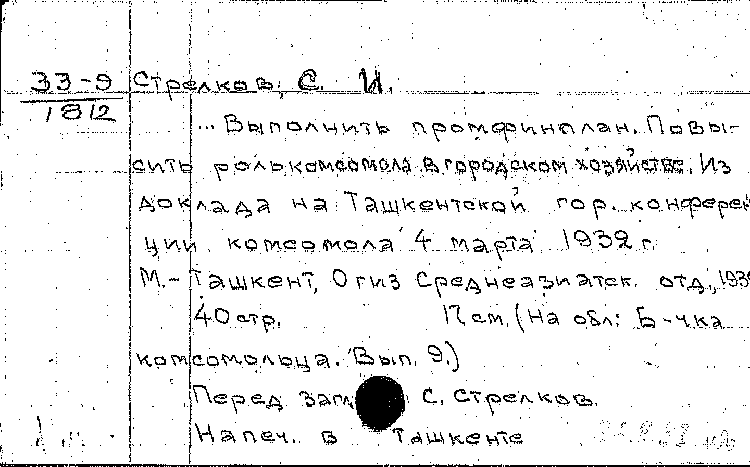 33-9 Стрелков, С. И.
1812
... Выполнить промфинплан. Повы-
сить роль комсомола в городском хозяйстве. Из
доклада на Ташкентской гор. конферен
ции комсомола 4 марта 1932 г.
М.-Ташкент, Огиз Среднеазиатск. отд.,
40 стр. 17 см. (На обл: Б-чка
комсомольца. Вып. 9.)
Перед С. Стрелков.
Напеч. в Ташкенте